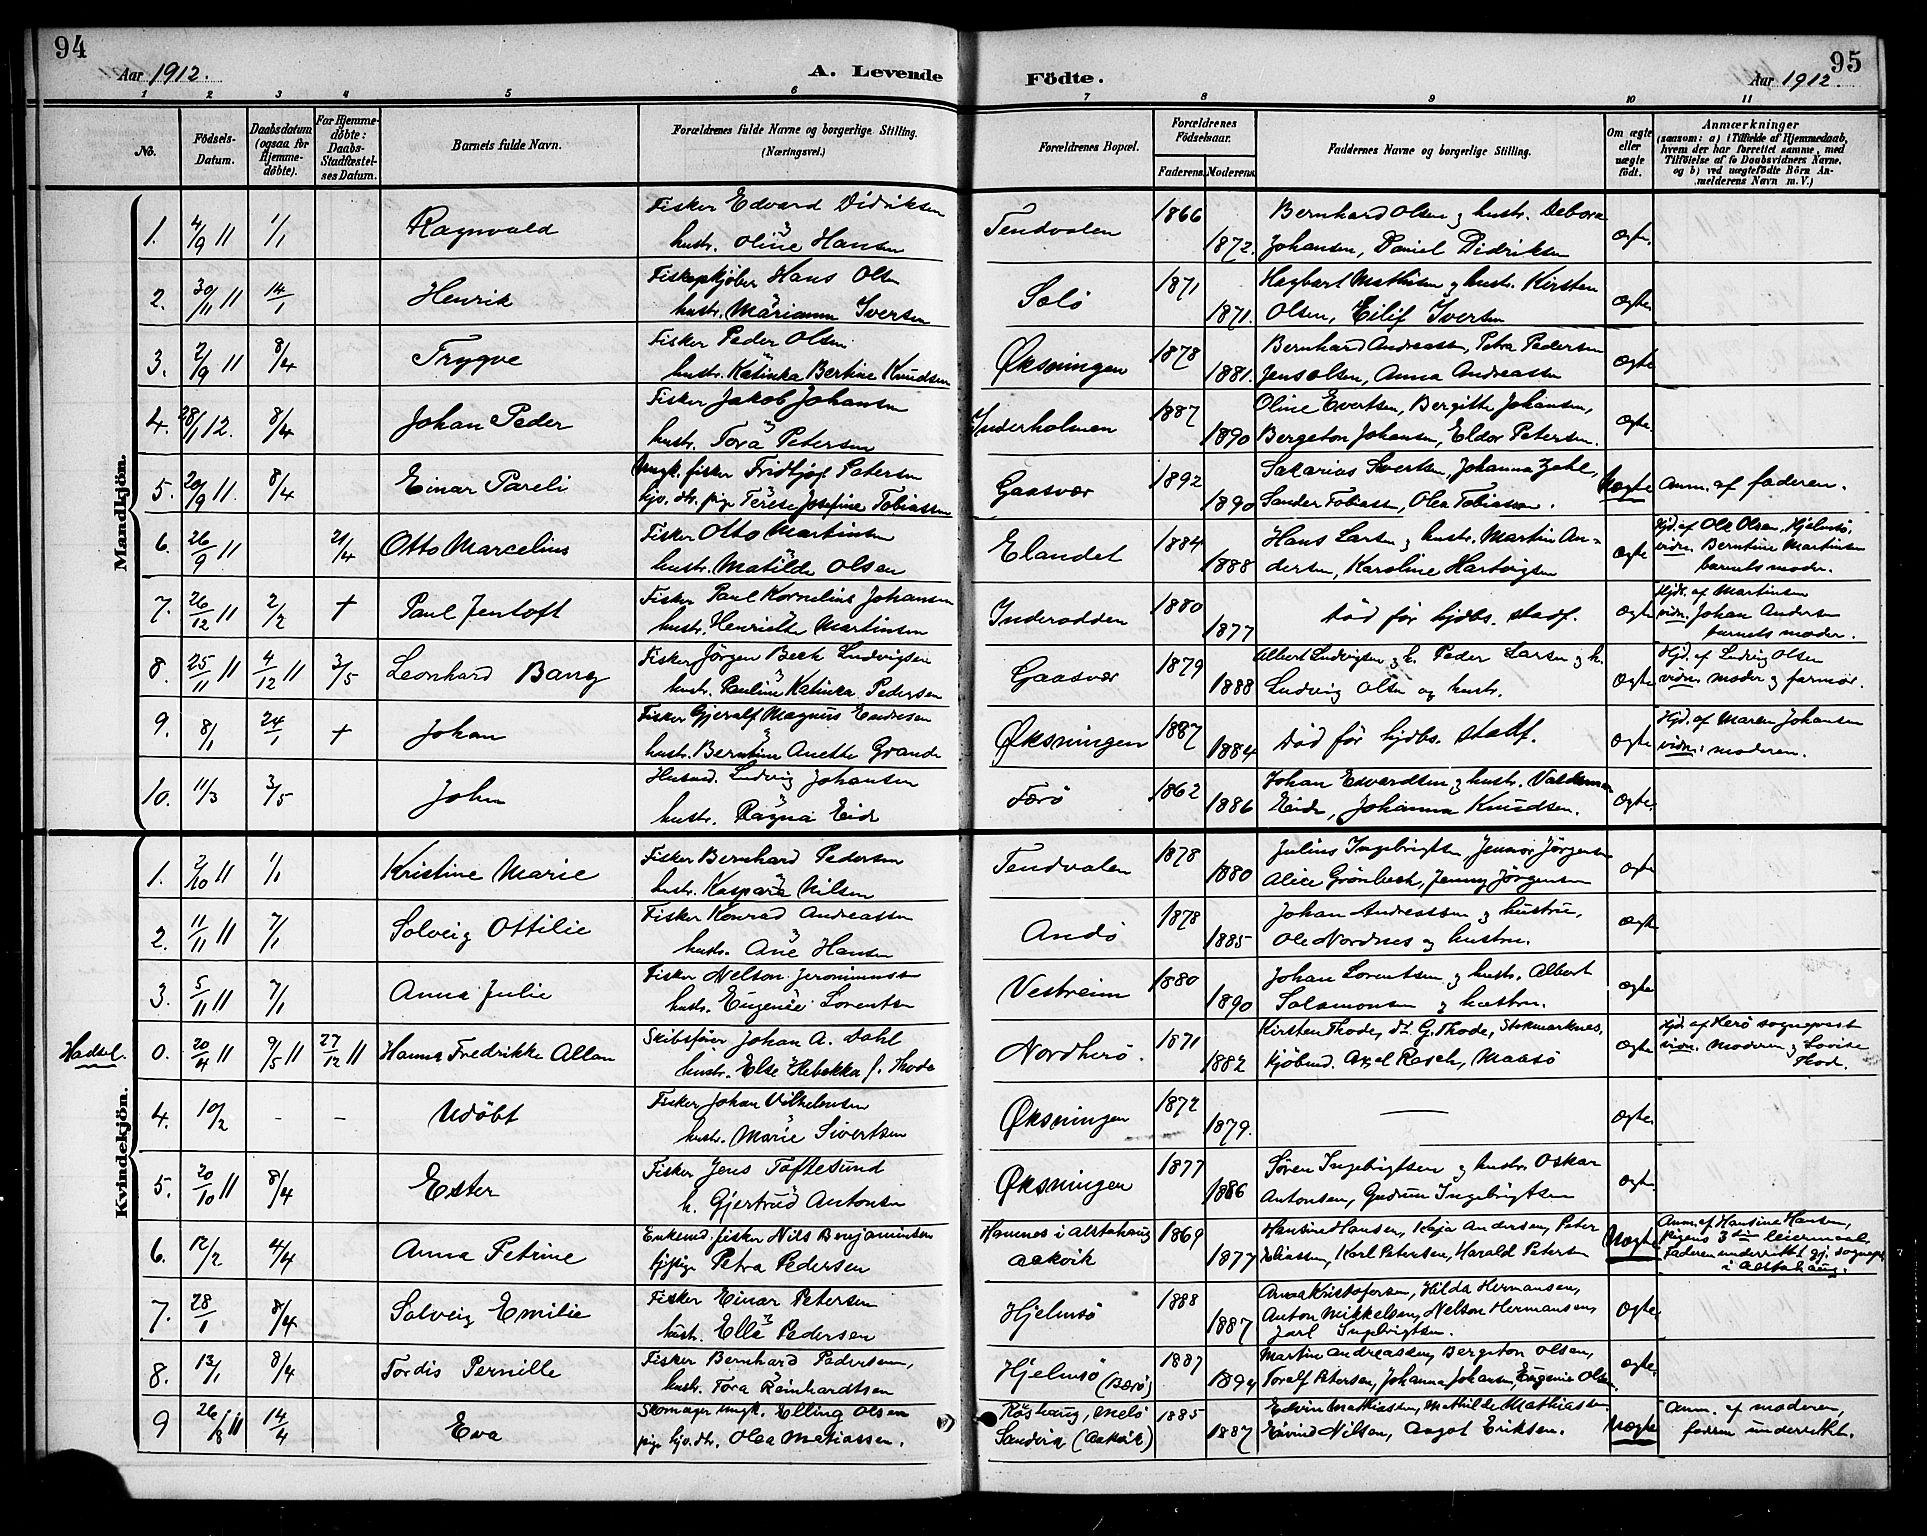 94
Aar 1912.
A. Levende
Födte.
95
Aar 1912.
1 2 3 4 5 6 7 8 9 10 11
No.
Födsels-Datum.
Daabsdatum (ogsaa for Hjemme-döbte).
For Hjemme-döbte: Daabs-Stadfæstel-ses Datum.
Barnets fulde Navn.
Forældrenes fulde Navne og borgerlige Stilling.
(Næringsvei.)
Forældrenes Bopæl.
Forældrenes Födselsaar.
Faderens. Moderens.
Faddernes Navne og borgerlige Stilling.
Om ægte eller uægte födt.
Anmærkninger
(saasom: a) i Tilfælde af Hjemmedaab, hvem der har forrettet samme, med Tilföielse af to Daabsvidners Navne, og b) ved uægtefödte Börn An-melderens Navn m. V.)
Mandkjön.
1. 4/9 11 1/1 Ragnvald Fisker Edvard Didriksen Tendvalen 1866 Bernhard Olsen og hustr. Debora ægte.
hustr. Oline Hansen 1872. Johansen, Daniel Didriksen
2. 30/11 11 14/1 Henrik Fiskeopkjøber Hans Olsen Solö 1871 Hagbart Mathisen og hustr. Kirsten ægte
hustr. Marianne Iversen 1871. Olsen, Eilif Iversen
3. 2/9 11 8/4 Trygve Fisker Peder Olsen Øksningen 1878 Bernhard Andreassen, Petra Pedersen ægte
hustr. Katinka Bertine Knudsen 1881. Jens Olsen, Anna Andreassen
4. 28/1 12. 8/4 Johan Peder Fisker Jakob Johansen Inderholmen 1887 Oline Evertsen, Bergitte Johansen, ægte.
hustr. Tora Petersen 1890 Bergeton Johansen, Eldor Petersen.
5. 20/9 11. 8/4 Einar Pareli Ungk. fisker Fridtjof Petersen Gaasvær 1892 Sakarias Sivertsen, Johanna Zahl, Uægte Anm. af faderen.
hjv. dtr. pige Terese Josefine Tobiassen 1890 Sander Tobiassen, Olea Tobiassen.
6. 26/9 11 21/4 Otto Marcelius Fisker Otto Martinsen Elandet 1884 Hans Larsen og hustr. Martin An- ægte Hjd. af Ole Olsen, Hjelmsö,
hustr. Matilde Olsen 1888 dersen, Karoline Hartvigsen vidn. Berntine Martinsen
barnets moder.
7. 26/12 11 2/2 + Paul Jentoft Fisker Paul Kornelius Johansen Inderodden 1880 Död før hjdbs. stadf. ægte Hjd. af Martinsen
hustr. Henriette Martinsen 1877 vidn. Johan Andersen
barnets moder.
8. 25/11 11 4/12 11 3/5 Leonhard Bang Fisker Jörgen Beck Ludvigsen Gaasvær 1879 Albert Ludvigsen og h. Peder Larsen og h. ægte Hjd. af Ludvig Olsen
hustr. Pauline Katinka Pedersen 1888 Ludvig Olsen og hustr. vidn. moder og farmor.
9. 8/1 24/1 + Johan Fisker Gjeralf Magnus Endresen Øksningen 1887 Död før hjdbs. stadf. ægte Hjd. af Maren Johansen
hustr. Berntine Anette Grande 1884 vidn: moderen.
10. 11/3 3/5 John Husmd. Ludvig Johansen Færö 1862 Johan Edvardsen og hustr. Valdemar ægte.
hustr. Ragna Eide 1886 Eide, Johanna Knudsen.
Kvindekjön.
1. 2/10 11 1/1 Kristine Marie Fisker Bernhard Pedersen Tendvalen 1878 Julius Ingebrigtsen, Jennor Jörgensen ægte
hustr. Kaspara Nilsen 1880 Alice Grönbech, Jenny Jörgensen
2. 11/11 11 7/1 Solveig Ottilie Fisker Konrad Andreassen Andö 1878 Johan Andreassen og hustru, ægte
hustr. Ane Hansen 1885 Ole Nordnes og hustru.
3. 5/11 11 7/1 Anna Julie Fisker Nelson Jeronimussen Vestreim 1880 Johan Lorentsen og hustr. Albert ægte
hustr. Eugenie Lorentsen 1890 Salamonsen og hustru.
Hadsel.
0. 20/4 11 9/5 11 27/12 11 Hanna Fredrikke Allan Skibsfører Johan A. Dahl Nordherö. 1871 Kirsten Thode, d.o. G. Thode, Stokmarknes, ægte Hjd. af Herö sogneprest
hustr. Else Rebekka f. Thode 1882 Kjöbmd. Axel Rasch, Maasö vidn. Moderen og Lovise
Thode.
4. 10/2 - - Udöbt Fisker Johan Vilhelmsen Øksningen 1872 — ægte
hustr. Marie Sivertsen 1879.
5. 20/10 11 8/4 Ester Fisker Jens Toftesund Øksningen 1877 Sören Ingebrigtsen og hustr. Oskar ægte
h. Gjertrud Antonsen 1886 Antonsen, Gudrun Ingebrigtsen
6. 12/2 4/4 Anna Petrine Enkemd. fisker Nils Benjaminsen Hamnes i Alstahaug 1869 Hansine Hansen, Kaja Andersen, Peter Uægte Anm. af Hansine Hansen,
Petra Pedersen Aakvik 1877 Eliassen, Karl Petersen, Harald Petersen Pigens 3die leiermaal,
Faderen underrettet gj. sognepr.
i Alstahaug.
7. 28/1 8/4 Solveig Emilie Fisker Einar Petersen Hjelmsö 1888 Anna Kristofersen, Hilda Hermansen, ægte
hustr. Ella Pedersen 1887 Anton Mikkelsen, Nelson Hermansen,
Jarl Ingebrigtsen.
8. 13/1 8/4 Tordis Pernille Fisker Bernhard Pedersen, Hjelmsö (Bærö) 1887 Martin Andreassen, Bergeton Olsen, ægte.
hustr. Tora Reinhardtsen 1894 Toralf Petersen, Johanna Johansen, Eugenie Olsen.
9 26/8 11 14/4 Eva Skomager ungk. Elling Olsen Röshaug, Melö 1885 Edvin Mathiassen, Mathilde Mathiassen Uægte Anm. af moderen,
pige hjv. dtr. Olea Matiassen. Sandvik (Aakvik) 1887 Eivind Nilsen, Aagot Eriksen. fadren underrettet.